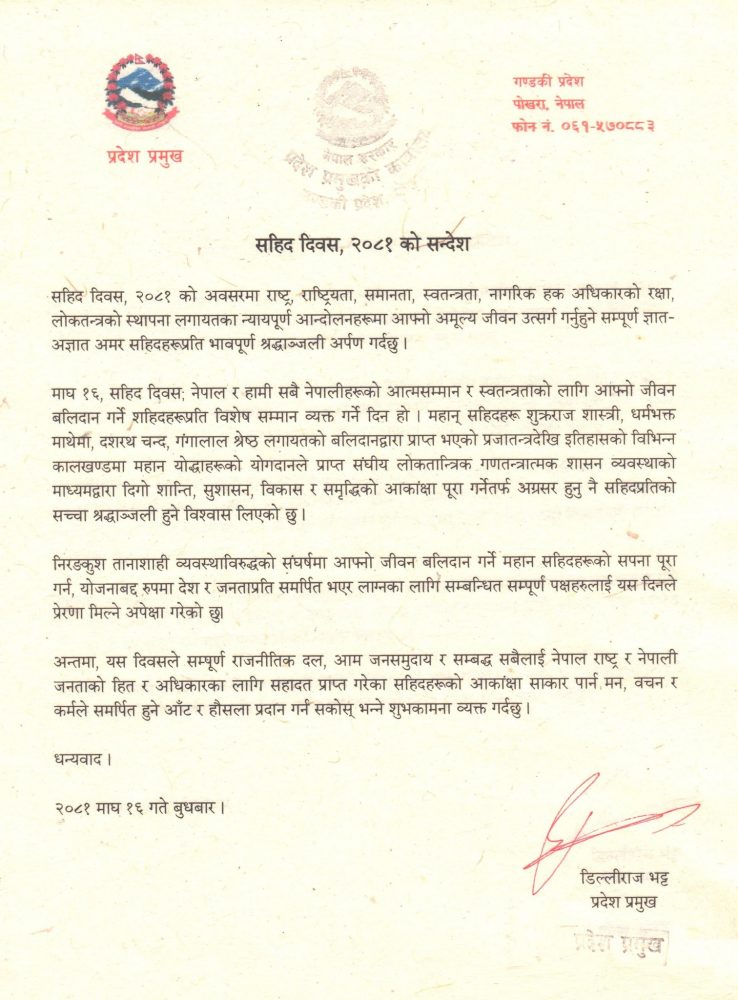 प्रदेश प्रमुख
नेपाल सरकार
प्रदेश प्रमुखको
गण्डकी प्रदेश,
गण्डकी प्रदेश
पोखरा, नेपाल
फोन नं. ०६१-५७०८८३
सहिद दिवस, २०८१ को सन्देश
सहिद दिवस, २०८१ को अवसरमा राष्ट्र, राष्ट्रियता, समानता, स्वतन्त्रता, नागरिक हक अधिकारको रक्षा,
लोकतन्त्रको स्थापना लगायतका न्यायपूर्ण आन्दोलनहरूमा आफ्नो अमूल्य जीवन उत्सर्ग गर्नुहुने सम्पूर्ण ज्ञात-
अज्ञात अमर सहिदहरूप्रति भावपूर्ण श्रद्धाञ्जली अर्पण गर्दछु ।
माघ १६, सहिद दिवस; नेपाल र हामी सबै नेपालीहरूको आत्मसम्मान र स्वतन्त्रताको लागि आफ्नो जीवन
बलिदान गर्ने शहिदहरूप्रति विशेष सम्मान व्यक्त गर्ने दिन हो । महान् सहिदहरू शुक्रराज शास्त्री, धर्मभक्त
माथेमा, दशरथ चन्द, गंगालाल श्रेष्ठ लगायतको बलिदानद्वारा प्राप्त भएको प्रजातन्त्रदेखि इतिहासको विभिन्न
कालखण्डमा महान योद्धाहरूको योगदानले प्राप्त संघीय लोकतान्त्रिक गणतन्त्रात्मक शासन व्यवस्थाको
माध्यमद्वारा दिगो शान्ति, सुशासन, विकास र समृद्धिको आकांक्षा पूरा गर्नेतर्फ अग्रसर हुनु नै सहिदप्रतिको
सच्चा श्रद्धाञ्जली हुने विश्वास लिएको छु ।
निरङकुश तानाशाही व्यवस्थाविरुद्धको संघर्षमा आफ्नो जीवन बलिदान गर्ने महान सहिदहरूको सपना पूरा
गर्न, योजनाबद्द रुपमा देश र जनताप्रति समर्पित भएर लाग्नका लागि सम्बन्धित सम्पूर्ण पक्षहरुलाई यस दिनले
प्रेरणा मिल्ने अपेक्षा गरेको छु।
अन्तमा, यस दिवसले सम्पूर्ण राजनीतिक दल, आम जनसमुदाय र सम्बद्ध सबैलाई नेपाल राष्ट्र र नेपाली
जनताको हित र अधिकारका लागि सहादत प्राप्त गरेका सहिदहरूको आकांक्षा साकार पार्न मन, वचन र
कर्मले समर्पित हुने आँट र हौसला प्रदान गर्न सकोस् भन्ने शुभकामना व्यक्त गर्दछु ।
धन्यवाद ।
२०८१ माघ १६ गते बुधबार ।
डिल्लीराज भट्ट
प्रदेश प्रमुख
प्रदेश प्रमुख